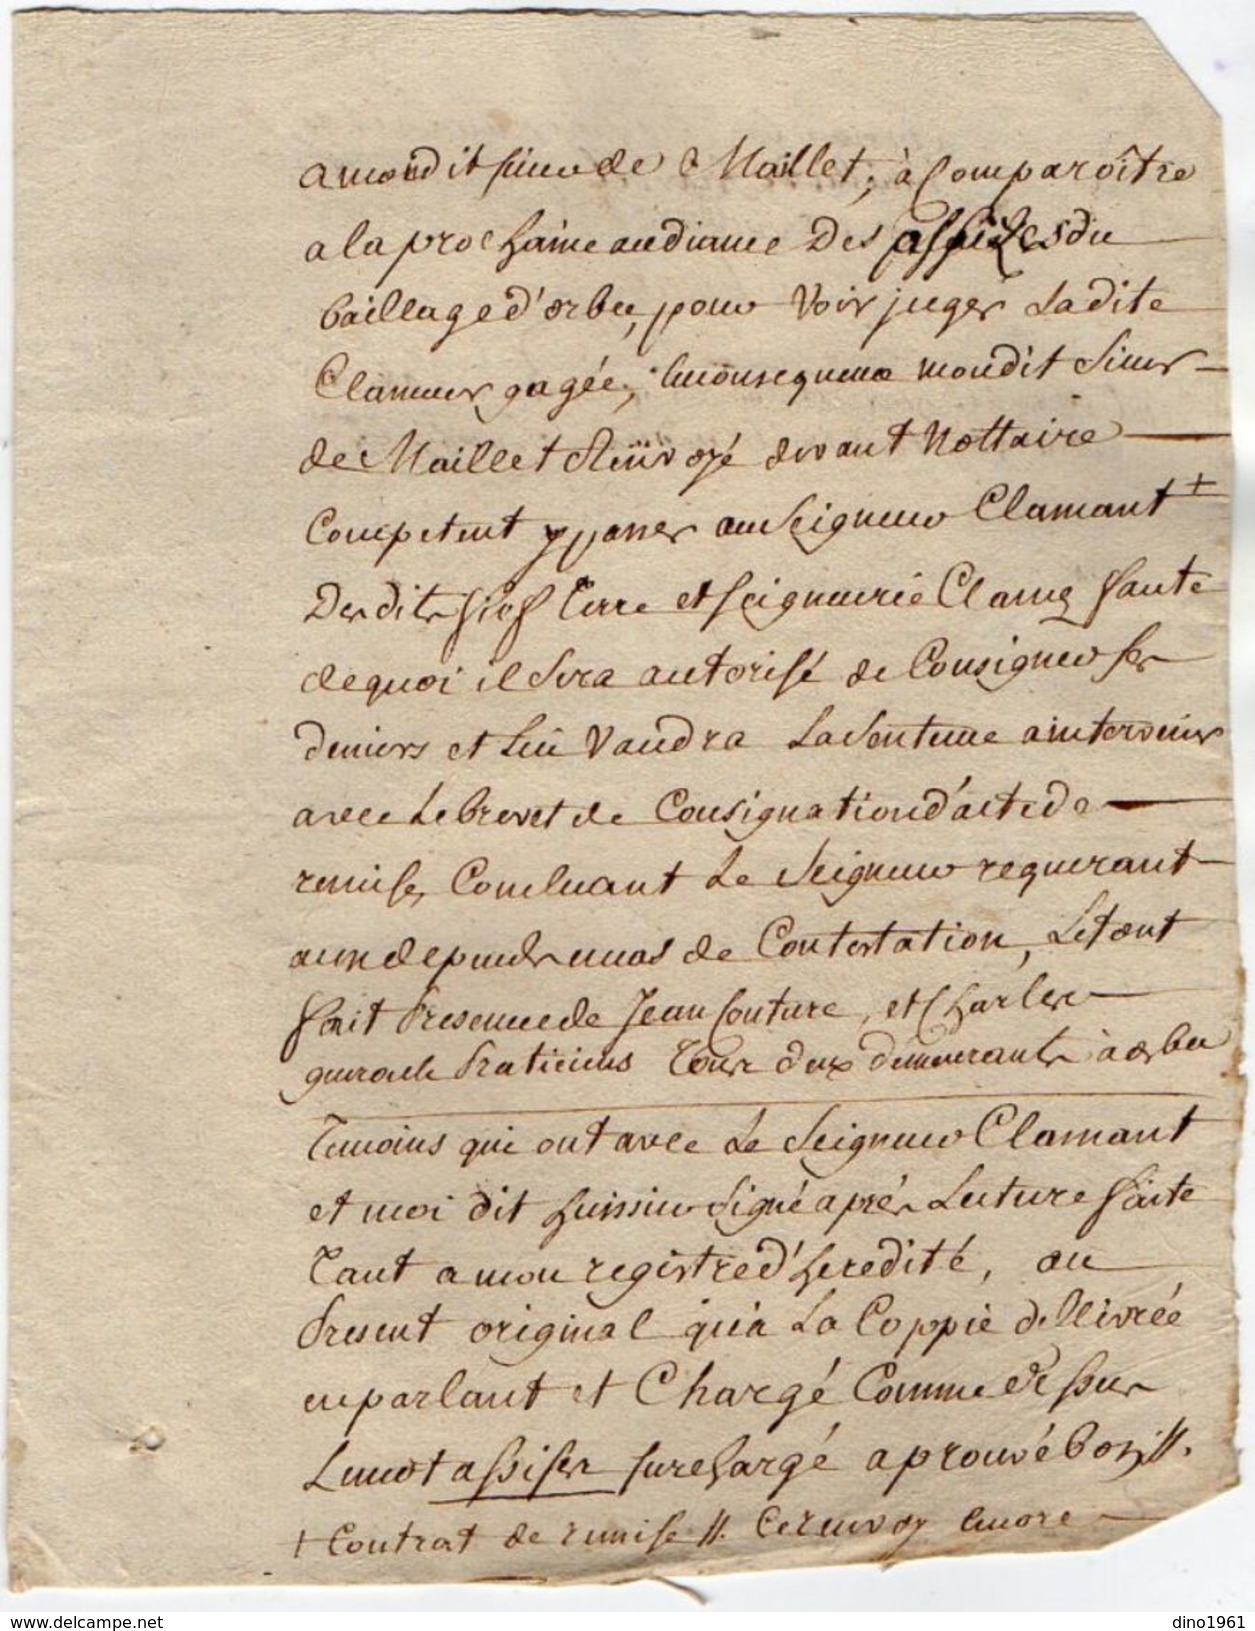 a mondit sieur de Maillet, à Comparoître
a la prochaine audiance Des assizes du
baillage d'orbec, pour Voir juger Ladite
Clameur gagée, En consequence mondit Sieur
de Maillet Renvoyé devant Nottaire
Competent y passer au Seigneur Clamant +
Desdits fief Terre et Seigneurie Clamés faute
de quoi il Sera autorisé de Consigner ses
deniers et lui Vaudra La Sentence a intervenir
avec Le brevet de Consignation d'acte de
remise, Concluant Le Seigneur requerant
aux depends en cas de Contestation, Le tout
fait Presence de Jean Couture, et Charles
Praticiens Tous deux demeurants à orbec
Temoins qui ont avec Le Seigneur Clamant
et moi dit huissier Signé aprés Lecture faite
Tant a mon registre d'heredité, au
Present original qu'a La Coppie dellivrée
en parlant et Chargé Comme dessus
Le mot assises surchargé aprouvé bon //.
+ Contrat de remise //. Ce renvoy encore
dino1961
www.delcampe.net